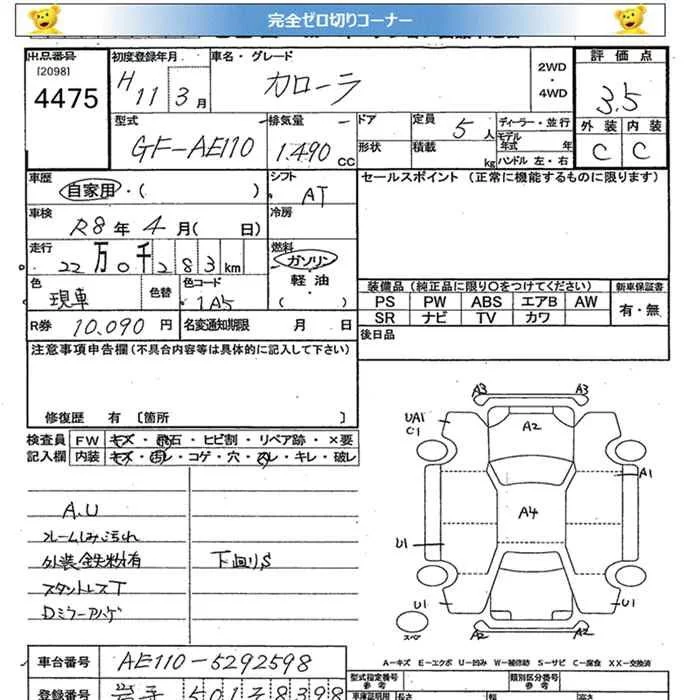 完全ゼロ切りコーナー
出品番号
[2098]
4475
初度登録年月
H 11 3月
車名・グレード
カローラ
2WD
・
4WD
評価点
3.5
外装 内装
C C
型式
GF-AE110
排気量
1.490 CC
ドア
定員
5人
ディーラー・並行
モデル
年式 年
形状
積載
kg
ハンドル 左・右
車歴
自家用・( )
シフト
AT
セールスポイント (正常に機能するものに限ります)
車検
R8年 4月( 日)
冷房
走行
22万0千283km
燃料
ガソリン
軽油
( )
色
現車
色替
色コード
1A5
装備品 (純正品に限り○をつけてください)
新車保証書
PS PW ABS エアB AW
SR ナビ TV カワ
有・無
R券 10,090円
名変通知期限 月 日
後日品
注意事項申告欄(不具合内容等は具体的に記入して下さい)
修復歴 有 [箇所 ]
検査員 FW キズ・飛石・ヒビ割・リペア跡・×要
記入欄 内装 キズ・汚レ・コゲ・穴・スレ・キレ・破レ
A.U
フレームしみ汚れ
外装鉄粉有
スタントレスT
Dミラーアハゲ
下廻りS
A3 A3
UA1
C1
A2
A1
A4
U1
U1 U1
スペア
A2 A2
A-キズ E-エクボ U-凹み W-補修跡 S-サビ C-腐食 XX-交換済
車台番号 AE110-5292598
型式指定番号
参考
類別区分番号
参考
登録番号
車庫証明用
長さ
幅
高さ